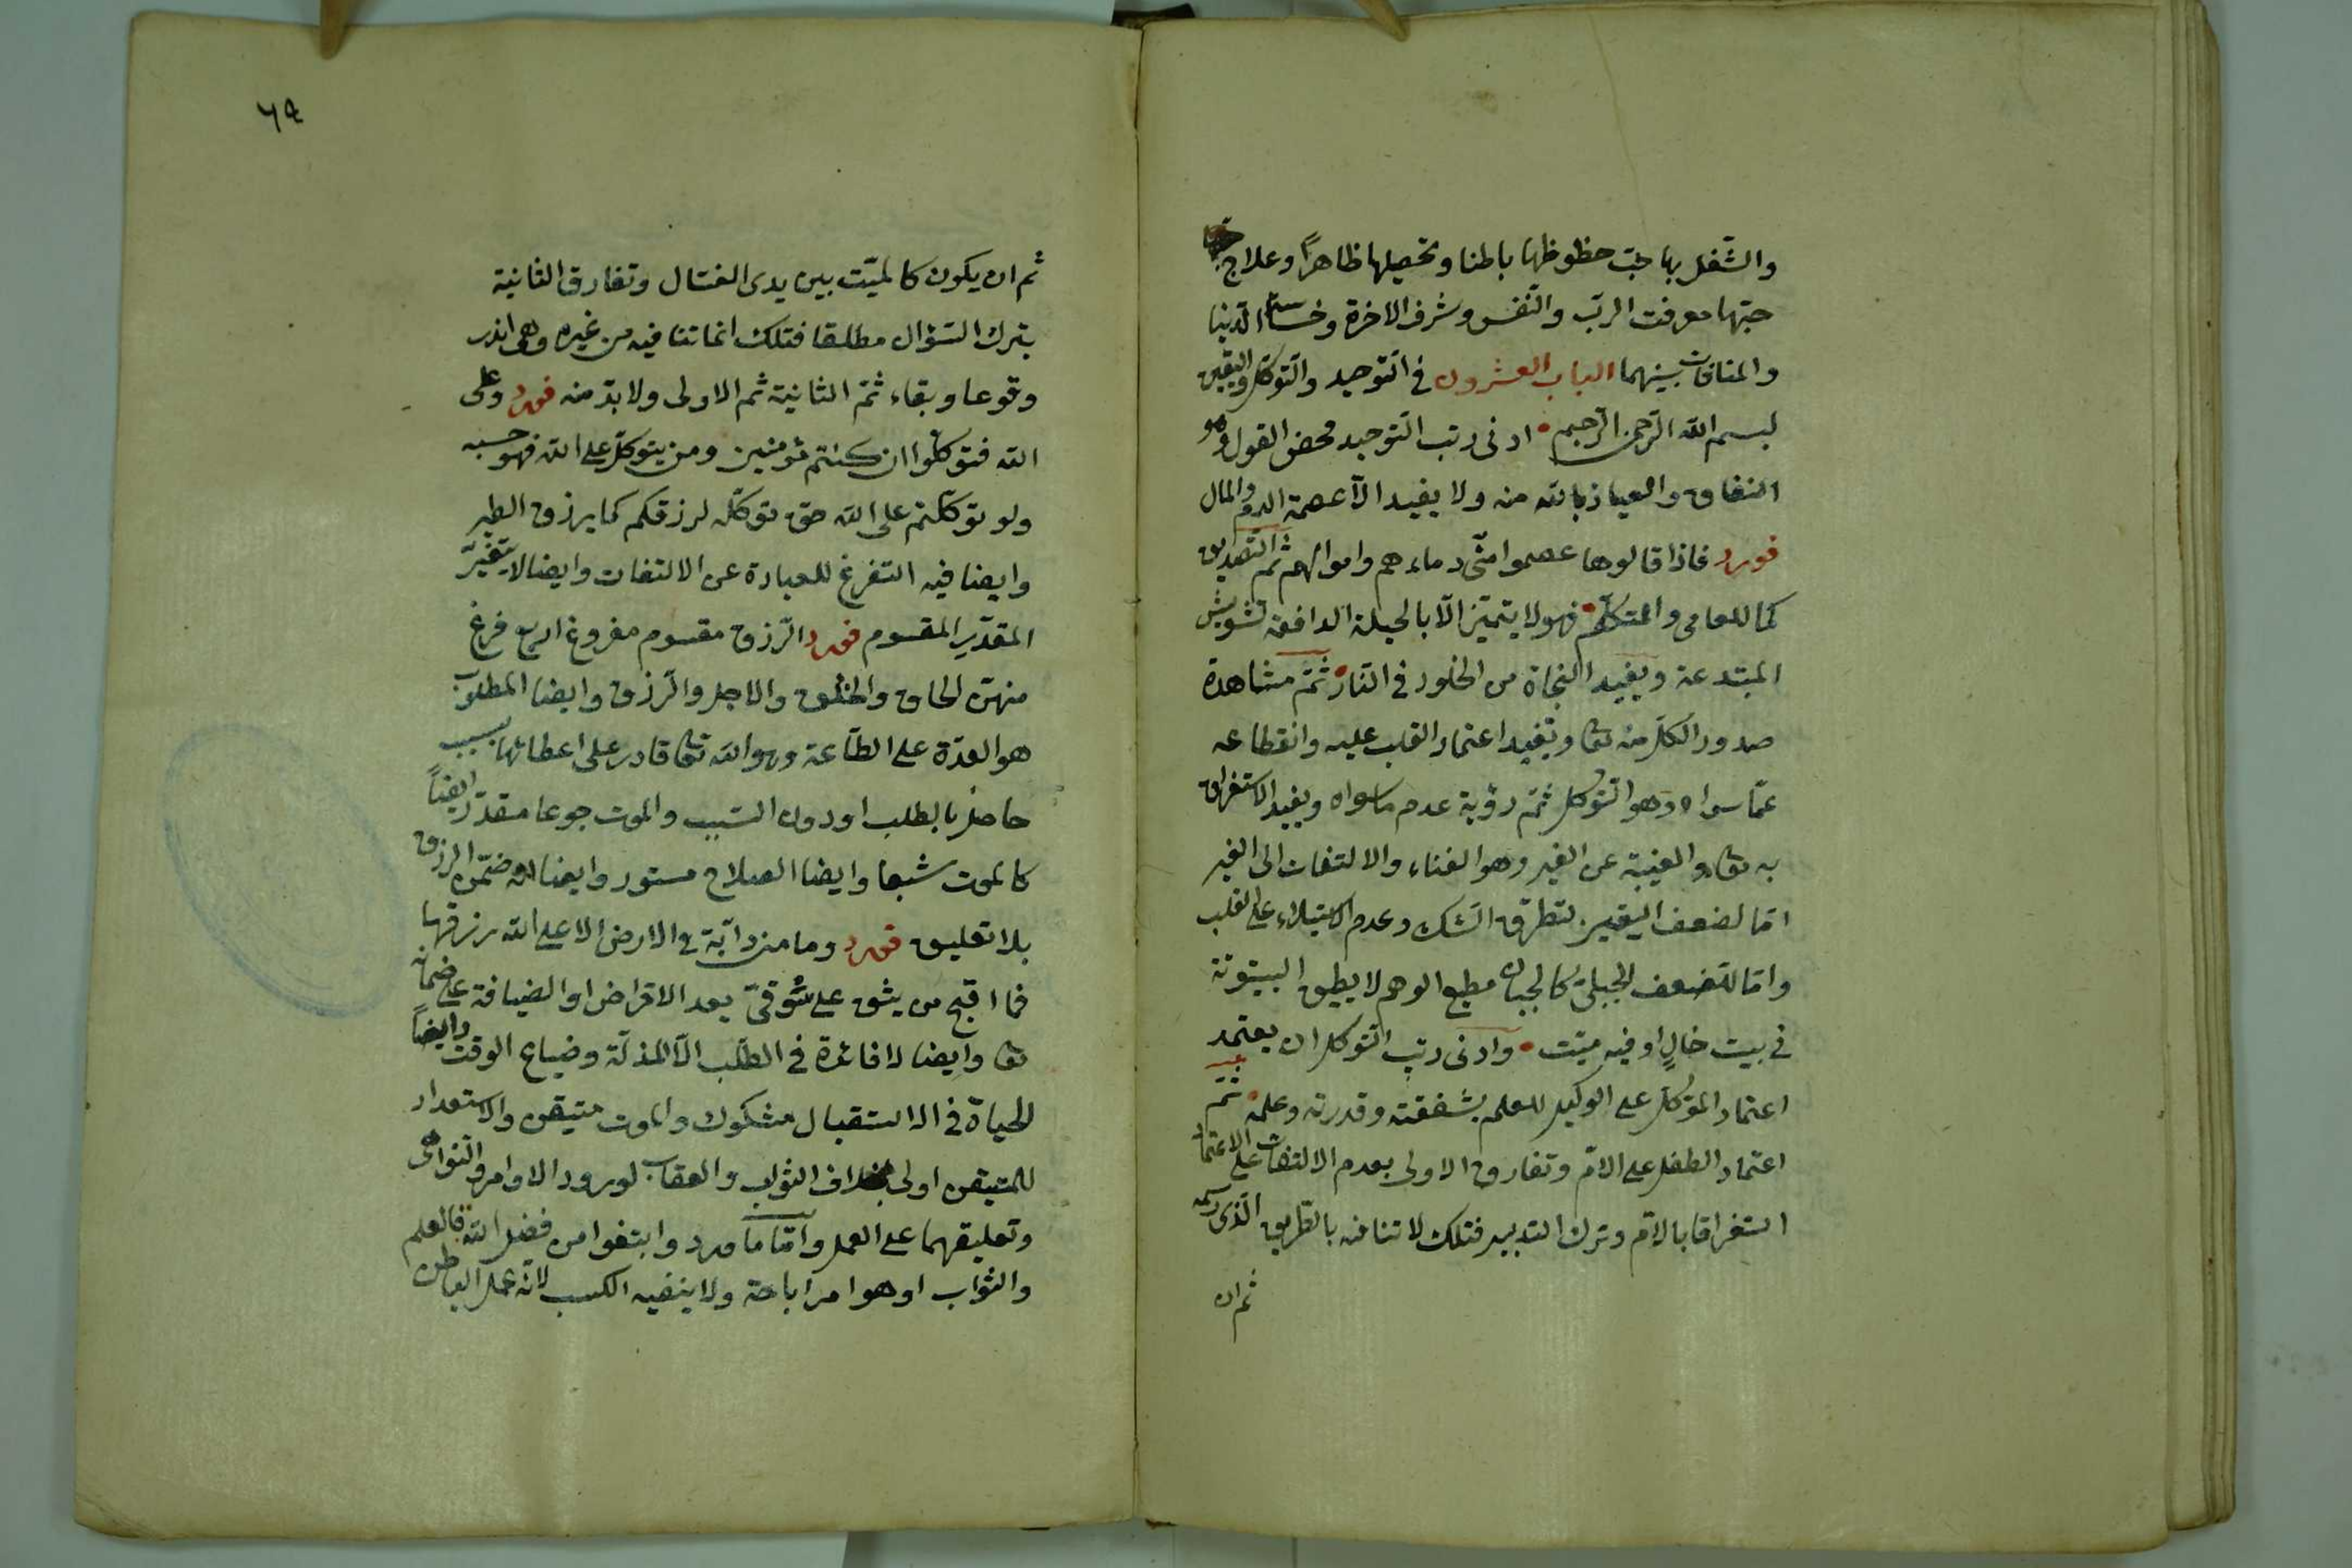 والشغل بها حبّ حظوظها باطنا وتحصيلها ظاهرًا وعلاج
حبّها معرفت الربّ والنّفس وشرف الاخرة وخساسة الدّنيا
والمنافات بينهما الباب العشرون في التّوحيد والتّوكّل واليقين
بسم الله الرّحمن الرّحيم ادنى رتب التّوحيد محض القول وهو
النفاق والعياذ بالله منه ولا يفيد الّا عصمة الدم والمال
فورد فاذا قالوها عصموا منّى دماءهم واموالهم ثمّ التصديق
كما للعامى والمتكلّم فهو لا يتميّز الّا بالحيلة الدافعة تشويش
المبتدعة ويفيد النجاة من الخلود في النّار ثمّ مشاهدة
صدور الكلّ منه تعا ويفيد اعتماد القلب عليه وانقطاعه
عمّا سواه وهو التّوكل ثمّ رؤية عدم ما سواه ويفيد الاستغراق
به تعا والغيبة عن الغير وهو الفناء والالتفات الى الغير
امّا لضعف اليقين لتطرّق الشّك وعدم الاستيلاء على القلب
وامّا لضعف الجبلّى كالجبان مطيع الوهم لا يطيق البيتوتة
في بيت خالٍ او فيه ميّت وادنى رتب التّوكل ان يعتمد عليه
اعتماد المؤكّل على الوكيل للعلم بشفقته وقدرته وعلمه ثمّ
اعتماد الطفل على الامّ وتفارق الاولى بعدم الالتفات على الاعتماد
استغراقا بالامّ وترك التدبير فتلك لا تنافه بالطّريق الّذى رسمه
ثم ان
٦٩
ثم ان يكون كالميّت بين يدى الغسّال وتفارق الثانية
بترك السّؤال مطلقا فتلك انما تنافيه من غيره وهى اندر
وقوعا وبقاء ثمّ الثانية ثم الاولى ولا بدّ منه فورد وعلى
الله فتوكّلوا ان كنتم مؤمنين ومن يتوكّل على الله فهو حسبه
ولو توكّلتم على الله حقّ توكّله لرزقكم كما يرزق الطير
وايضا فيه التفرغ للعبادة عن الالتفات وايضا لا يتغيّر
المقدّر المقسوم فورد الرّزق مقسوم مفروغ اربع فرغ
منهنّ الخلق والخلق والاجل والرّزق وايضا المطلوب
هو العدّة على الطّاعة وهو الله تعا قادر على اعطائها بسبب
حاصل بالطلب او دون السّبب والموت جوعا مقدّر ايضًا
كالموت شبعا وايضا الصلاح مستور وايضا الله ضمّن الرزق
بلا تعليق فورد وما من دابّة في الارض الا على الله رزقها
فما اقبح من يثق على سوقىّ يعد الاقراض او الضيافة على ضمانه
تعا وايضا لا فائدة في الطّلب الّا المذلّة وضياع الوقت وايضًا
الحياة في الاستقبال مشكوك والموت متيقن والاستعداد
للمتيقن اولى بخلاف الثواب والعقاب لورود الاوامر والنّواهى
وتعليقهما على العمل وامّا ما ورد وابتغوا من فضل الله فالعلم
والثواب او هو امر اباحة ولا ينفيه الكسب لانّه عمل الباطن